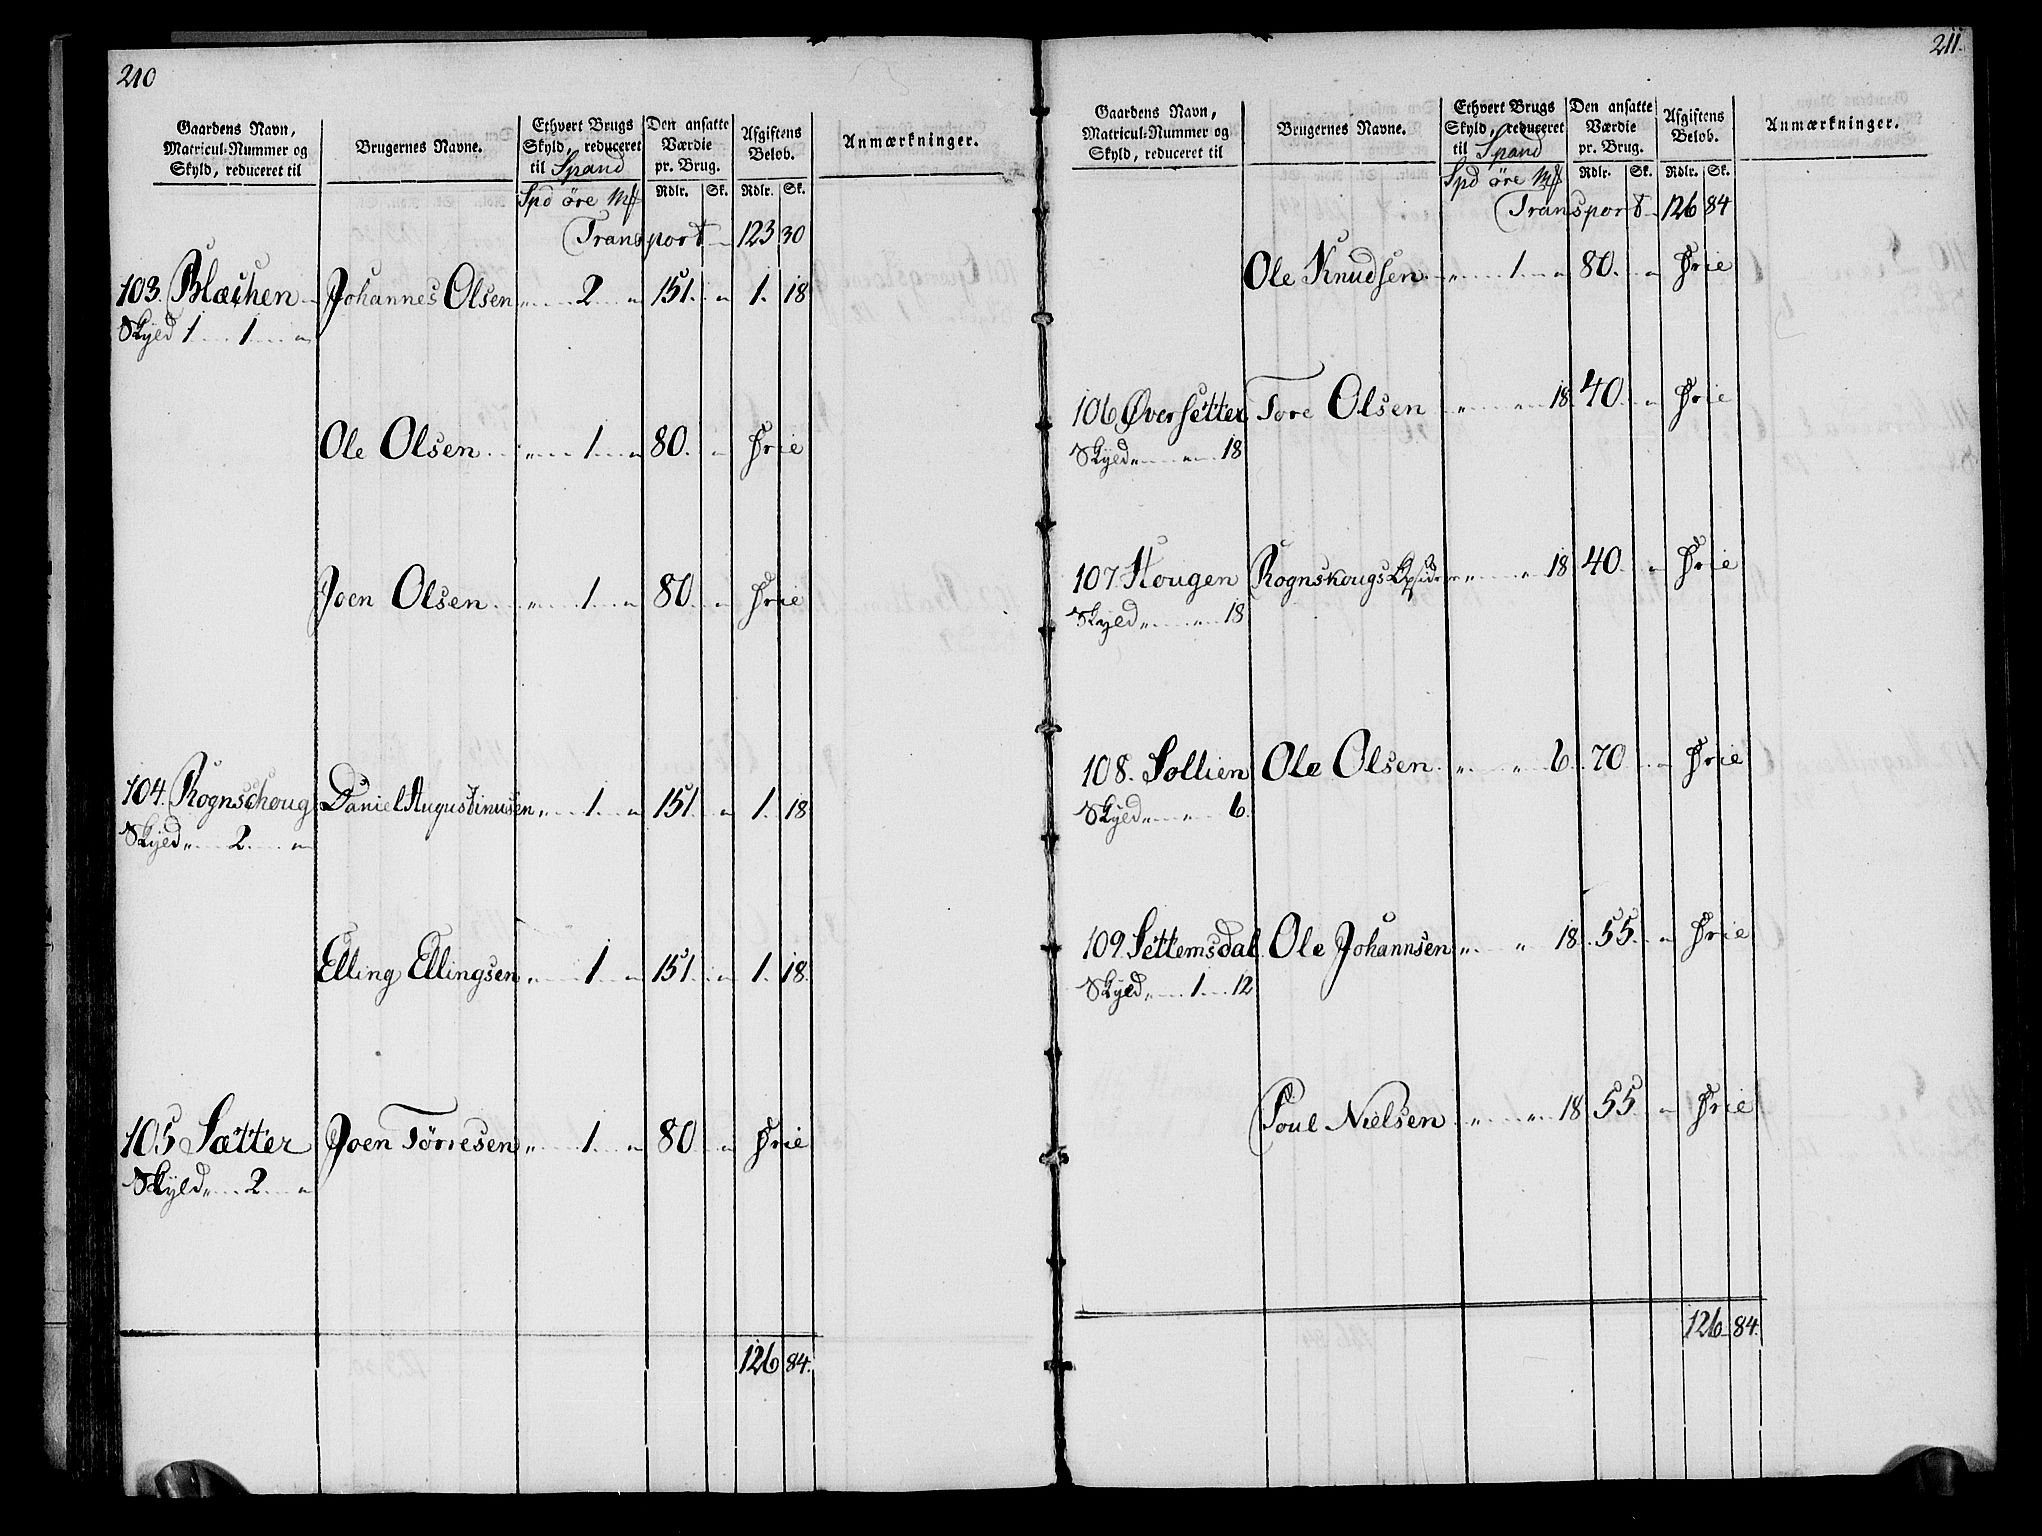 210
Gaardens Navn, Matricul-Nummer og Skyld, reduceret til
Brugernes Navne.
Ethvert Brugs Skyld, reduceret til Spand
Den ansatte Værdie pr. Brug.
Afgiftens Beløb.
Anmærkninger.
Spd øre Mk Rdlr. Sk. Rdlr. Sk.
Transport 123 30
103. Blæchen Johannes Olsen „ 2 „ 151 „ 1. 18
Skyld 1 1 „
Ole Olsen „ 1 „ 80 „ Frie
Joen Olsen „ 1 „ 80 „ Frie
104. Rognschoug Daniel Augustinusen „ 1 „ 151 „ 1. 18
Skyld „ 2 „
Elling Ellingsen „ 1 „ 151 „ 1. 18
105 Sætter Joen Torresen „ 1 „ 80 „ Frie
Skyld „ 2 „
126 84.
211.
Gaardens Navn, Matricul-Nummer og Skyld, reduceret til
Brugernes Navne.
Ethvert Brugs Skyld, reduceret til Spand
Den ansatte Værdie pr. Brug.
Afgiftens Beløb.
Anmærkninger.
Spd øre Mk Rdlr. Sk. Rdlr. Sk.
Transport 126 84
Ole Knudsen „ 1 „ 80 „ Frie
106 Øversetter Tore Olsen „ „ 18 40 „ Frie
Skyld „ „ 18
107. Hougen Rognskougs „ „ 18 40 „ Frie
Skyld „ „ 18
108. Sollien Ole Olsen „ „ 6 70 „ Frie
Skyld „ „ 6.
109. Settemsdal Ole Johannsen „ „ 18 55 „ Frie
Skyld „ 1 12
Poul Nielsen „ „ 18 55 „ Frie
126 84.